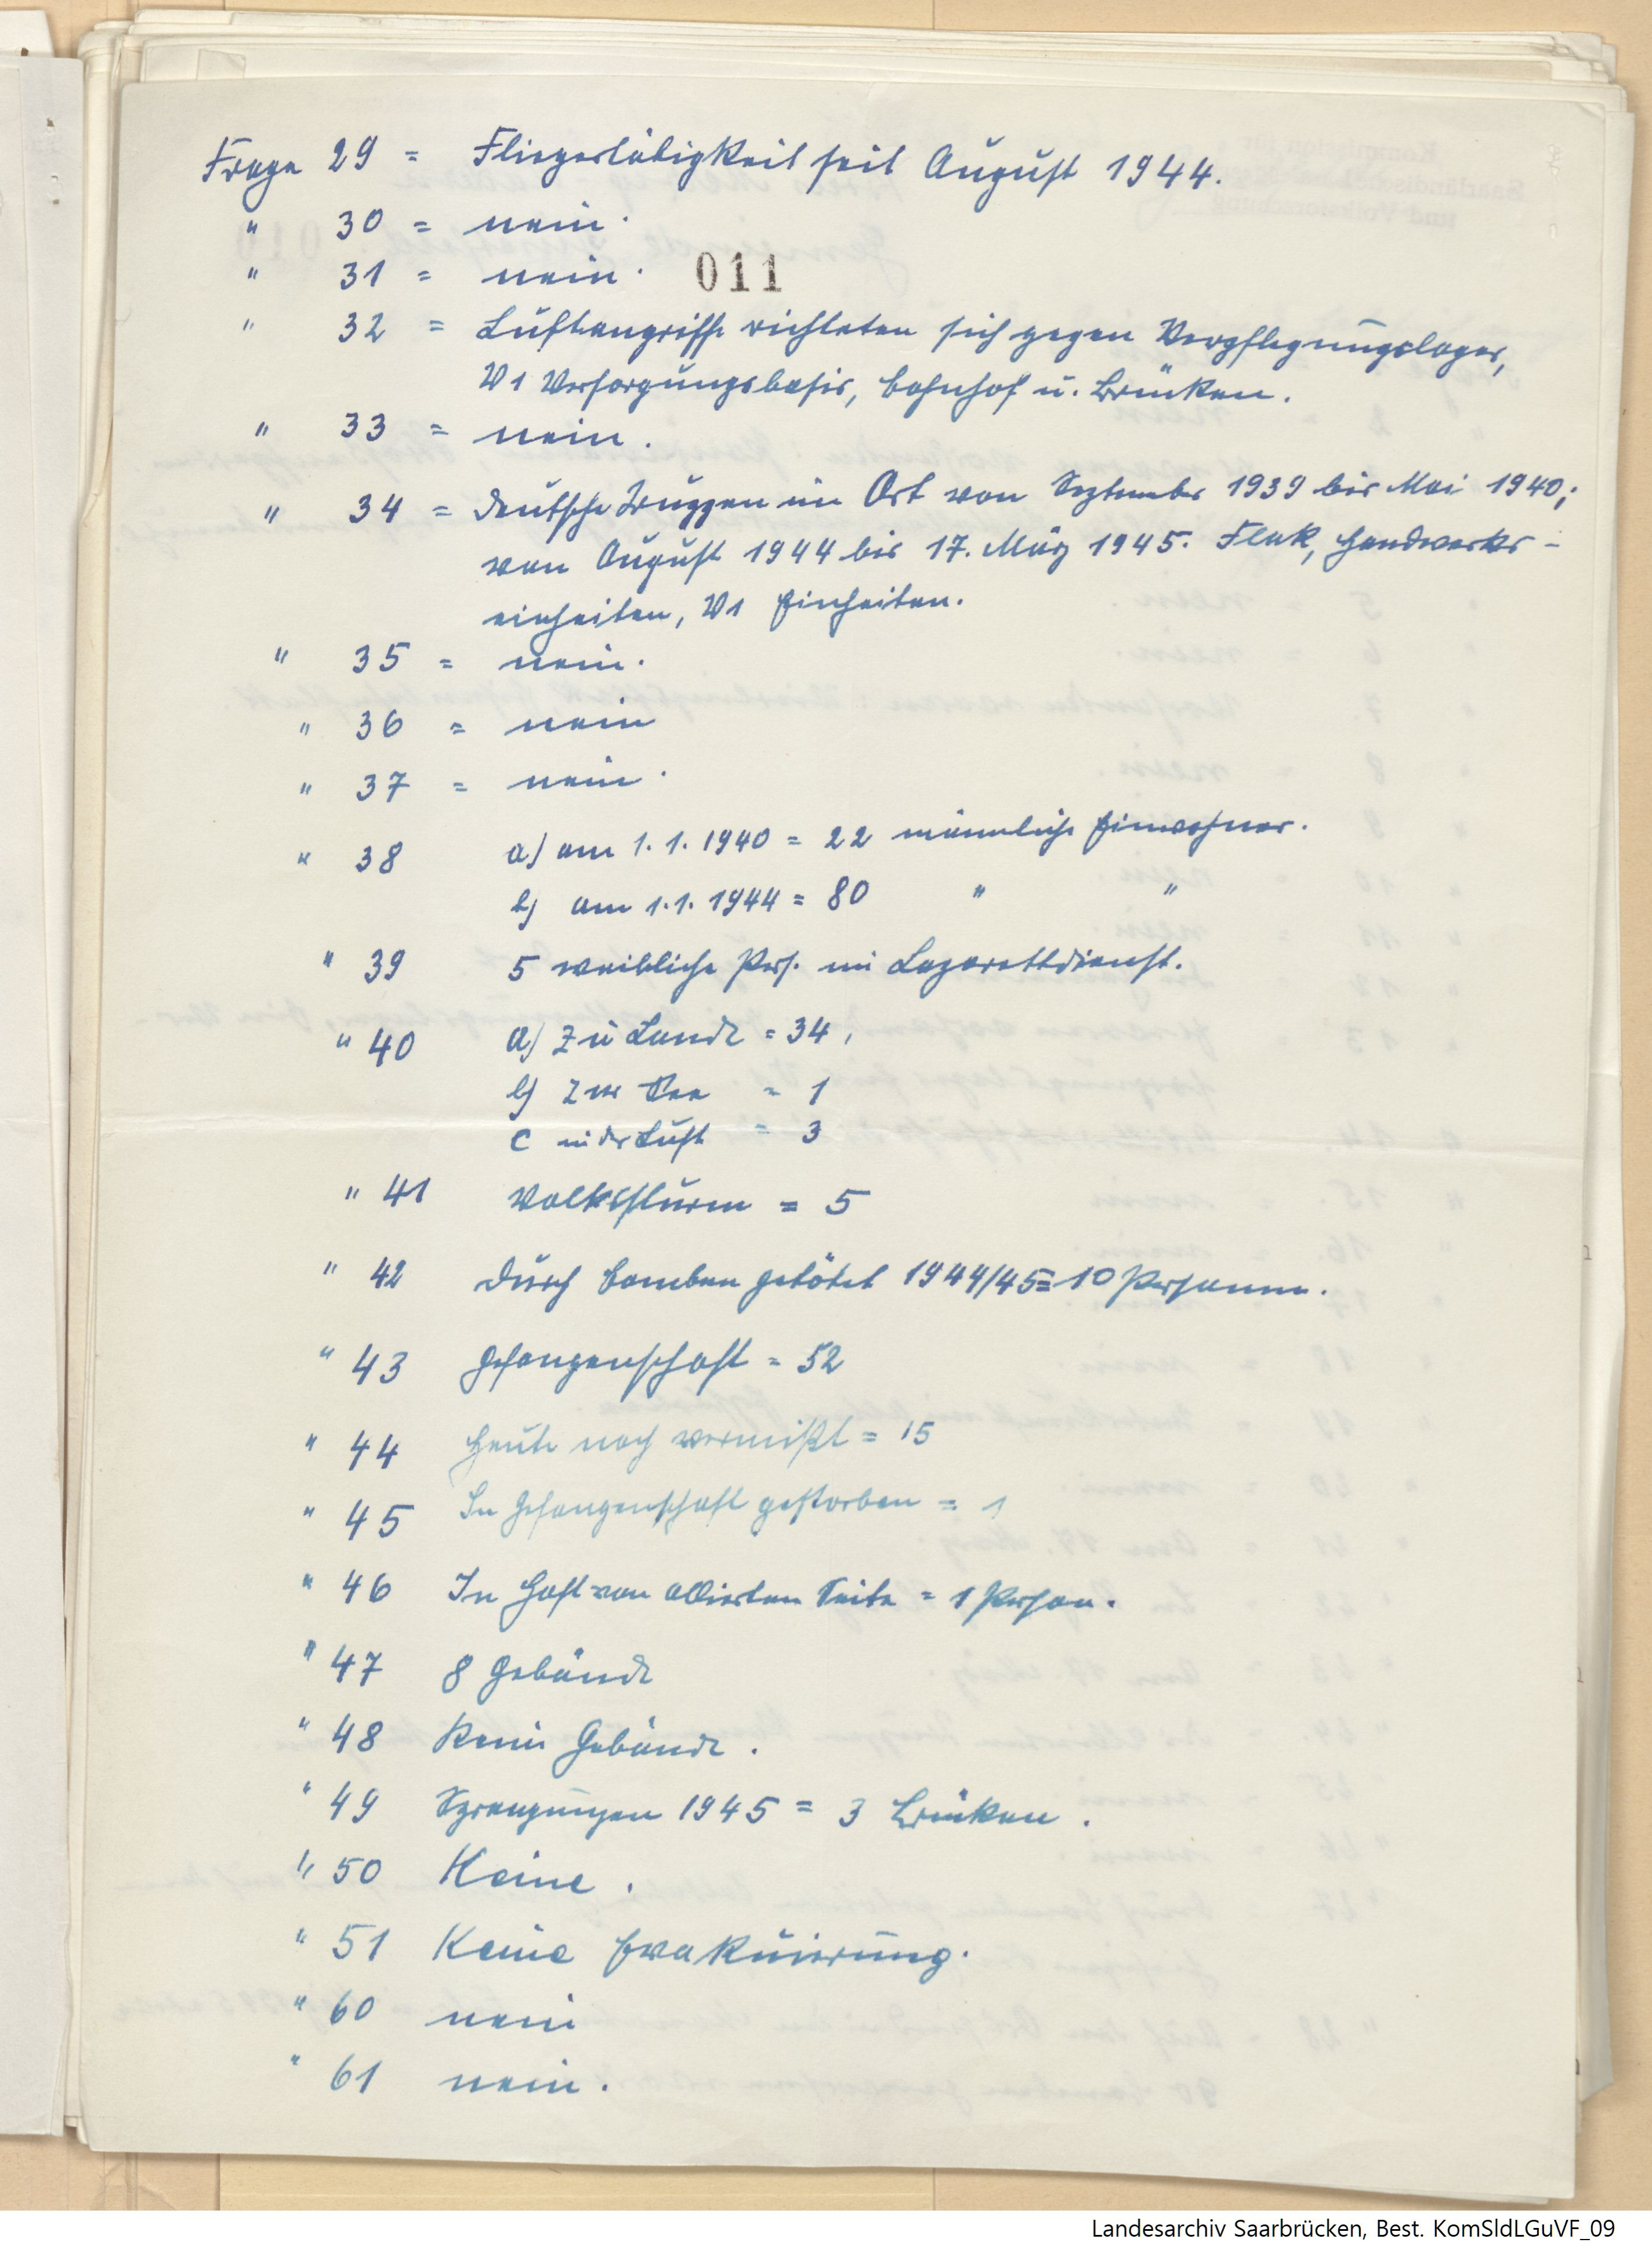 Frage 29 = Fliegertätigkeit seit August 1944.
" 30 = nein.
" 31 = nein.
011
" 32 = Luftangriffe richteten sich gegen Verpflegungslager,
V1 Versorgungsbasis, Bahnhof u. Brücken.
" 33 = nein.
" 34 = Deutsche Truppen im Ort von September 1939 bis Mai 1940;
von August 1944 bis 17. März 1945. Flak, Handwerks-
einheiten, V1 Einheiten.
" 35 = nein.
" 36 = nein
" 37 = nein.
" 38 a) am 1.1.1940 = 22 männliche Einwohner.
b) am 1.1.1944 = 80 " "
" 39 5 weibliche Pers. im Lazarettdienst.
" 40 a) Zu Lande = 34,
b) Zur See = 1
c in der Luft = 3
" 41 Volkssturm = 5
" 42 Durch Bomben getötet 1944/45 = 10 Personen.
" 43 Gefangenschaft = 52
" 44 Heute noch vermißt = 15
" 45 In Gefangenschaft gestorben = 1
" 46 In Haft von alliierten Seite = 1 Person.
" 47 8 Gebäude
" 48 Kein Gebäude.
" 49 Sprengungen 1945 = 3 Brücken.
" 50 Keine.
" 51 Keine Evakuierung.
" 60 nein
" 61 nein.
Landesarchiv Saarbrücken, Best. KomSldLGuVF_09